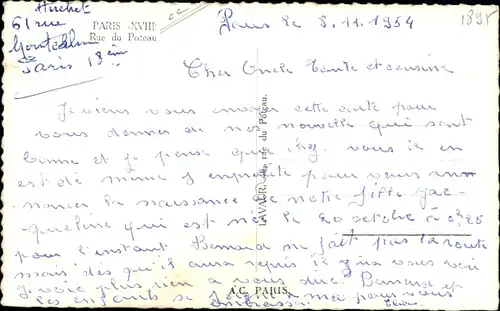 Huchet
61 rue
Montcalm
Paris 18ème
PARIS-XVIII
Rue du Poteau
Paris le 8.11.1954
1895
Cher Oncle Tante et cousine
Je viens vous envoyer cette carte pour
vous donner de nos nouvelle qui sont
bonne et je pense que chez vous il en
est de même ensuite pour vous
noncer la naissance de notre fille Jac-
queline qui est née le 20 octobre à 0h25
pour l'instant Bernard ne fait pas la route
mais des qu'il aura repris il ira vous voir
je vois plus rien a vous dire. Bernard et
les enfants se joigne a moi pour vous
embrasser
LAVAUR, rue du Poteau.
A.C. PARIS